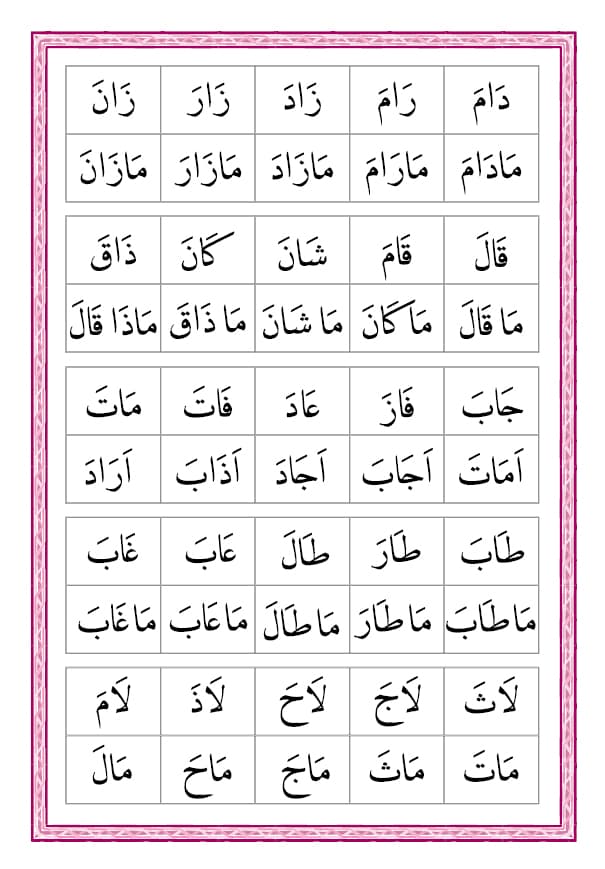 دَامَ رَامَ زَادَ زَارَ زَانَ
مَادَامَ مَارَامَ مَازَادَ مَازَارَ مَازَانَ
قَالَ قَامَ شَانَ كَانَ ذَاقَ
مَا قَالَ مَاكَانَ مَا شَانَ مَا ذَاقَ مَاذَا قَالَ
جَابَ فَازَ عَادَ فَاتَ مَاتَ
اَمَاتَ اَجَابَ اَجَادَ اَذَابَ اَرَادَ
طَابَ طَارَ طَالَ عَابَ غَابَ
مَا طَابَ مَا طَارَ مَا طَالَ مَا عَابَ مَا غَابَ
لَاثَ لَاجَ لَاحَ لَاذَ لَامَ
مَاتَ مَاثَ مَاجَ مَاحَ مَالَ